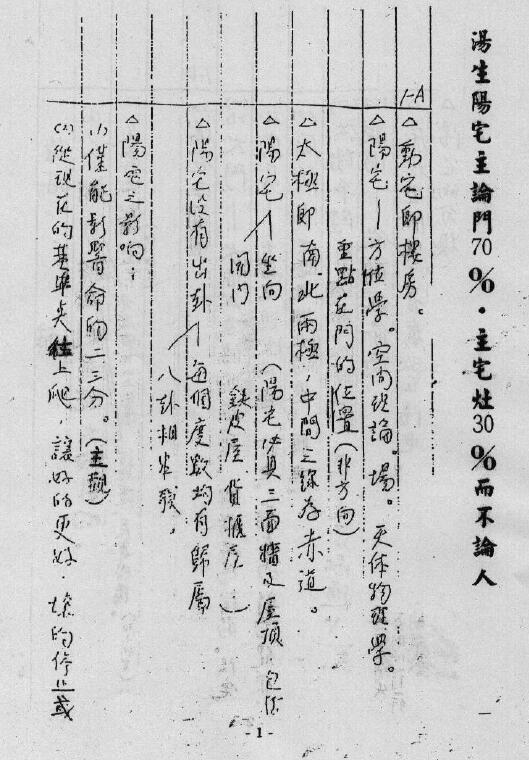 湯生陽宅主論門70%·主宅灶30%而不論人
1-A
△動宅即樓房。
△陽宅—方位學。空間理論。場。天体物理學。
重點在門的位置(非方向)
△太極即南北兩極,中間之線為赤道。
△陽宅—坐向(陽宅必具三面牆及屋頂,包括
開門 鉄皮屋 貨櫃屋)
△陽宅沒有出卦—每個度數均有歸屬
八卦相生
△陽宅之影响:
(1)僅能影響命的二三分。(主觀)
(2)從現在的基準点往上爬,讓好的更好·壞的停止或
-1-